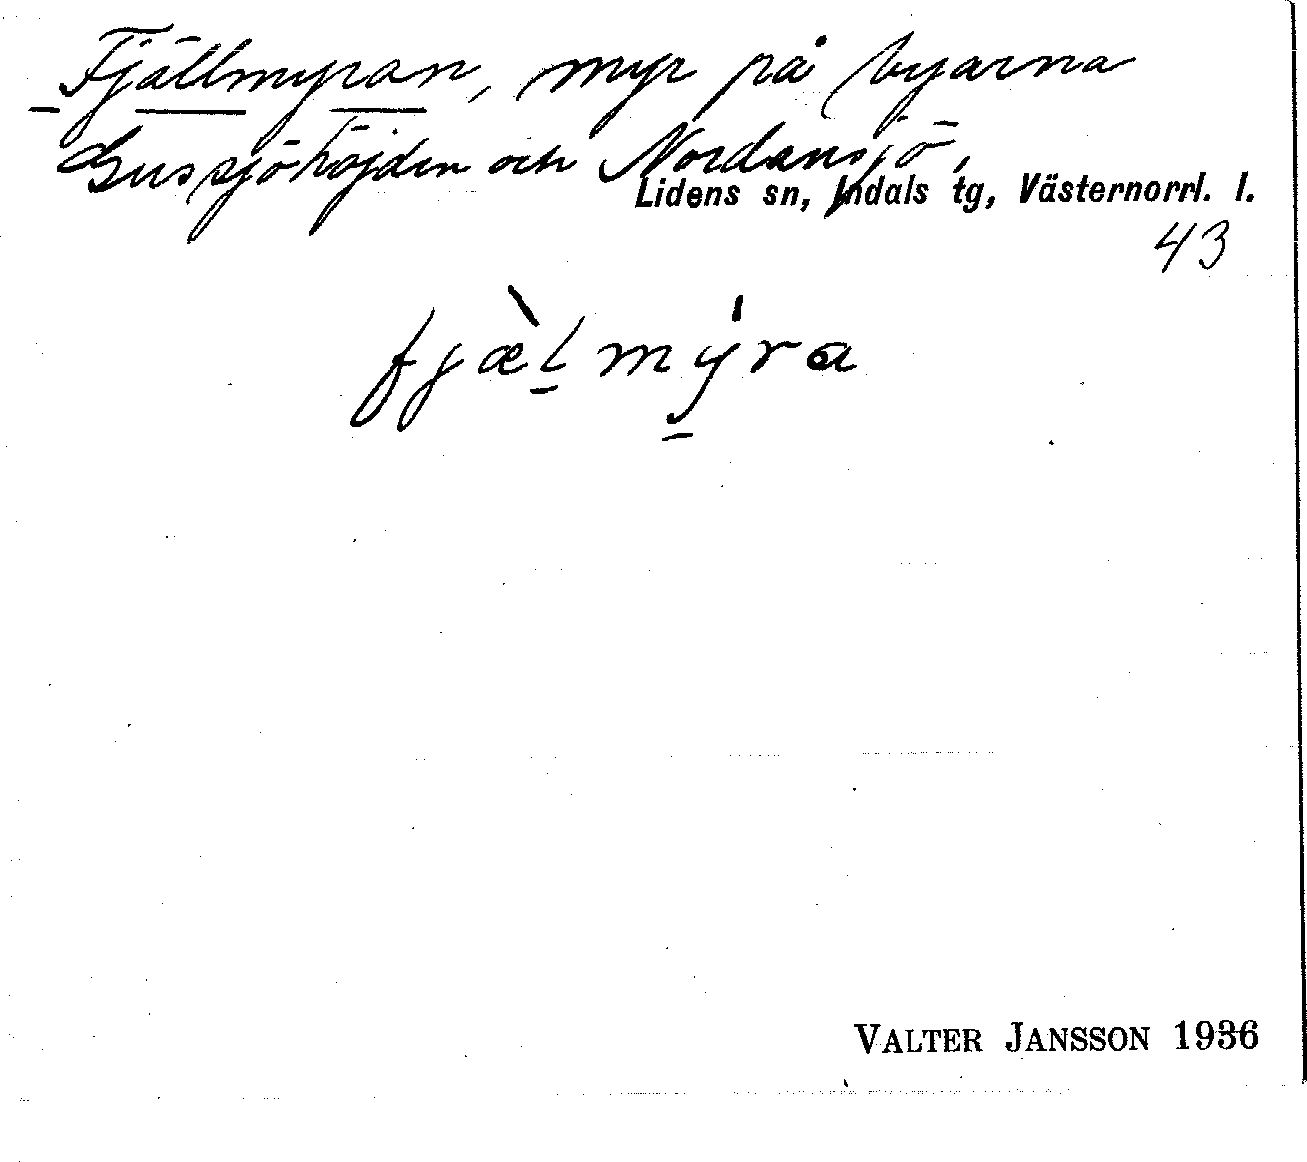 Fjällmyran, myr på byarna
Gussjöhöjden och Nordansjö,
Lidens sn, Indals tg, Västernorrl. l.
43
fjæ̀lmýra
VALTER JANSSON 1936